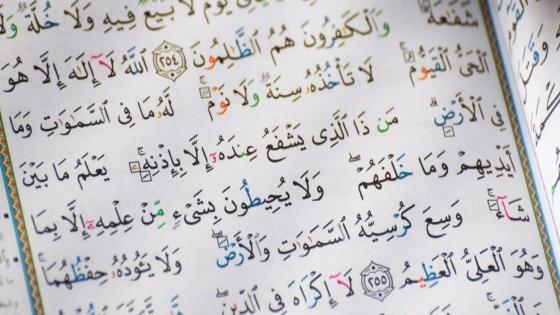 يَوْمٌ لَا بَيْعٌ فِيهِ وَلَا خُلَّةٌ وَلَا
شَفَٰعَةٌ وَٱلْكَٰفِرُونَ هُمُ ٱلظَّٰلِمُونَ ٢٥٤ ٱللَّهُ لَآ إِلَٰهَ إِلَّا هُوَ
ٱلْحَىُّ ٱلْقَيُّومُ ۚ لَا تَأْخُذُهُۥ سِنَةٌ وَلَا نَوْمٌ ۚ لَّهُۥ مَا فِى ٱلسَّمَٰوَٰتِ وَمَا
فِى ٱلْأَرْضِ ۗ مَن ذَا ٱلَّذِى يَشْفَعُ عِندَهُۥٓ إِلَّا بِإِذْنِهِۦ ۚ يَعْلَمُ مَا بَيْنَ
أَيْدِيهِمْ وَمَا خَلْفَهُمْ ۖ وَلَا يُحِيطُونَ بِشَىْءٍ مِّنْ عِلْمِهِۦٓ إِلَّا بِمَا
شَآءَ ۚ وَسِعَ كُرْسِيُّهُ ٱلسَّمَٰوَٰتِ وَٱلْأَرْضَ ۖ وَلَا يَـُٔودُهُۥ حِفْظُهُمَا ۚ
وَهُوَ ٱلْعَلِىُّ ٱلْعَظِيمُ ٢٥٥ لَآ إِكْرَاهَ فِى ٱلدِّينِ